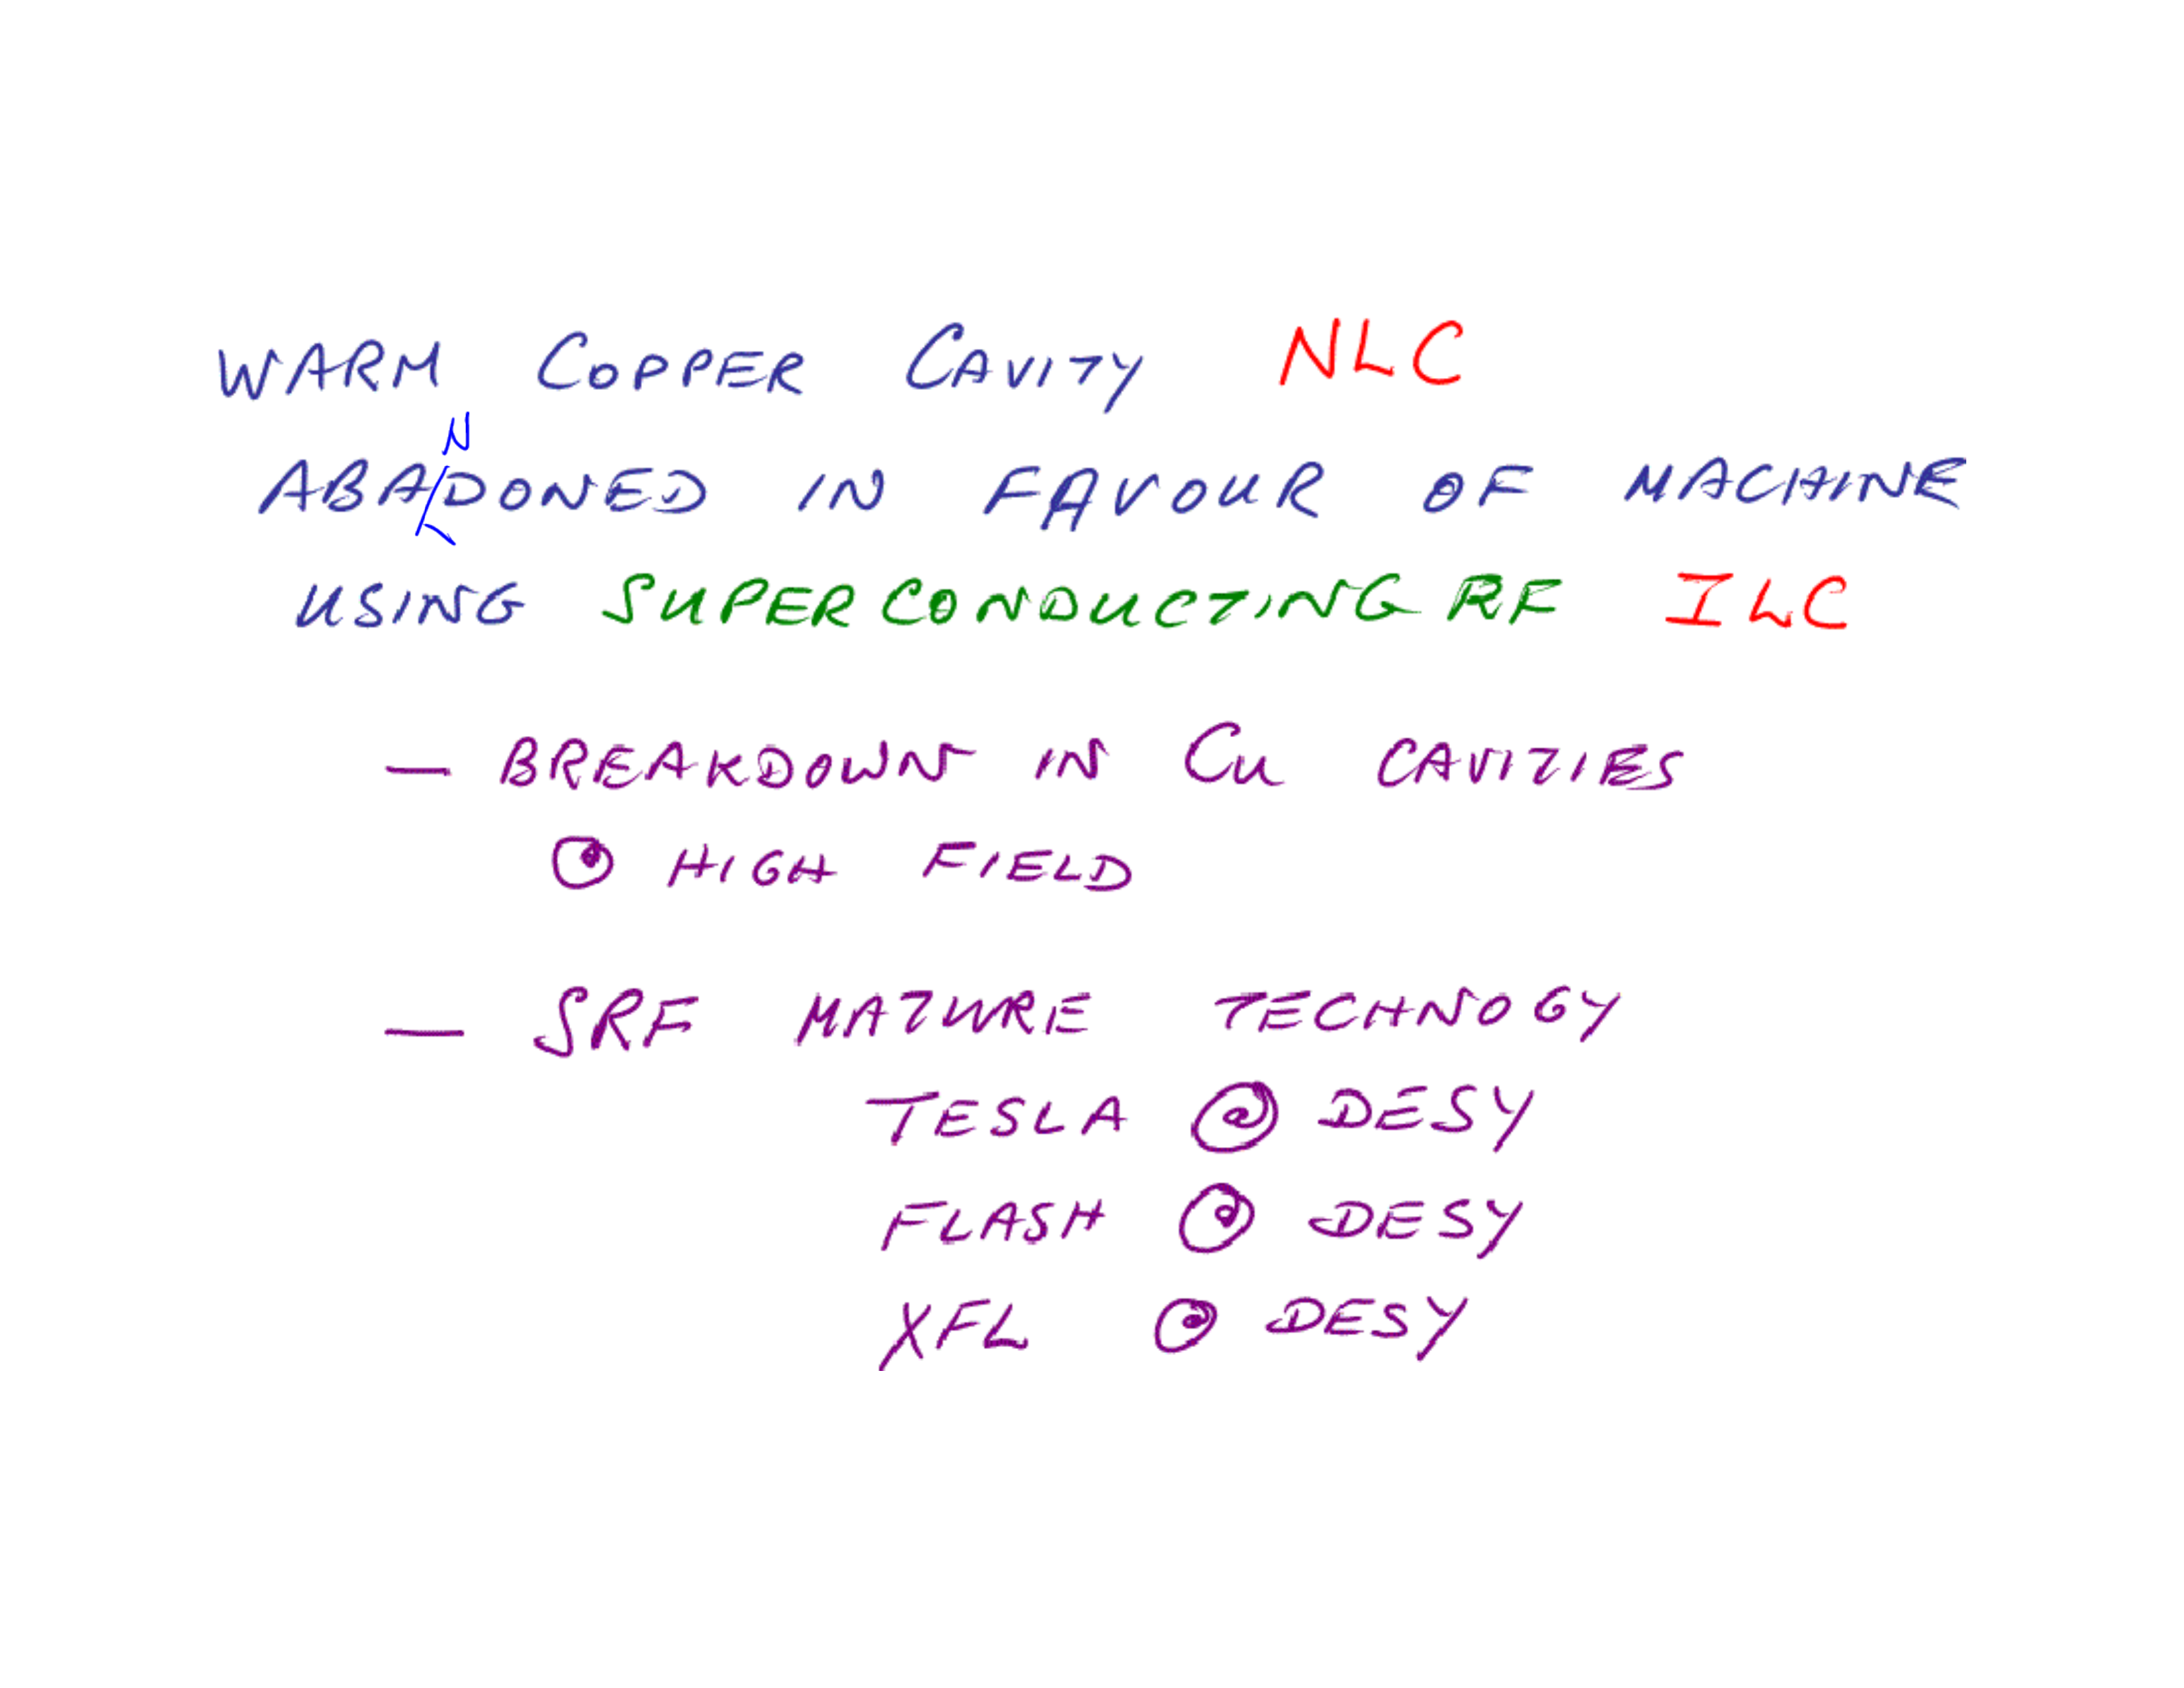 WARM COPPER CAVITY NLC
ABANDONED IN FAVOUR OF MACHINE
USING SUPERCONDUCTING RF ILC
— BREAKDOWN IN Cu CAVITIES
@ HIGH FIELD
— SRF MATURE TECHNOGY
TESLA @ DESY
FLASH @ DESY
XFL @ DESY